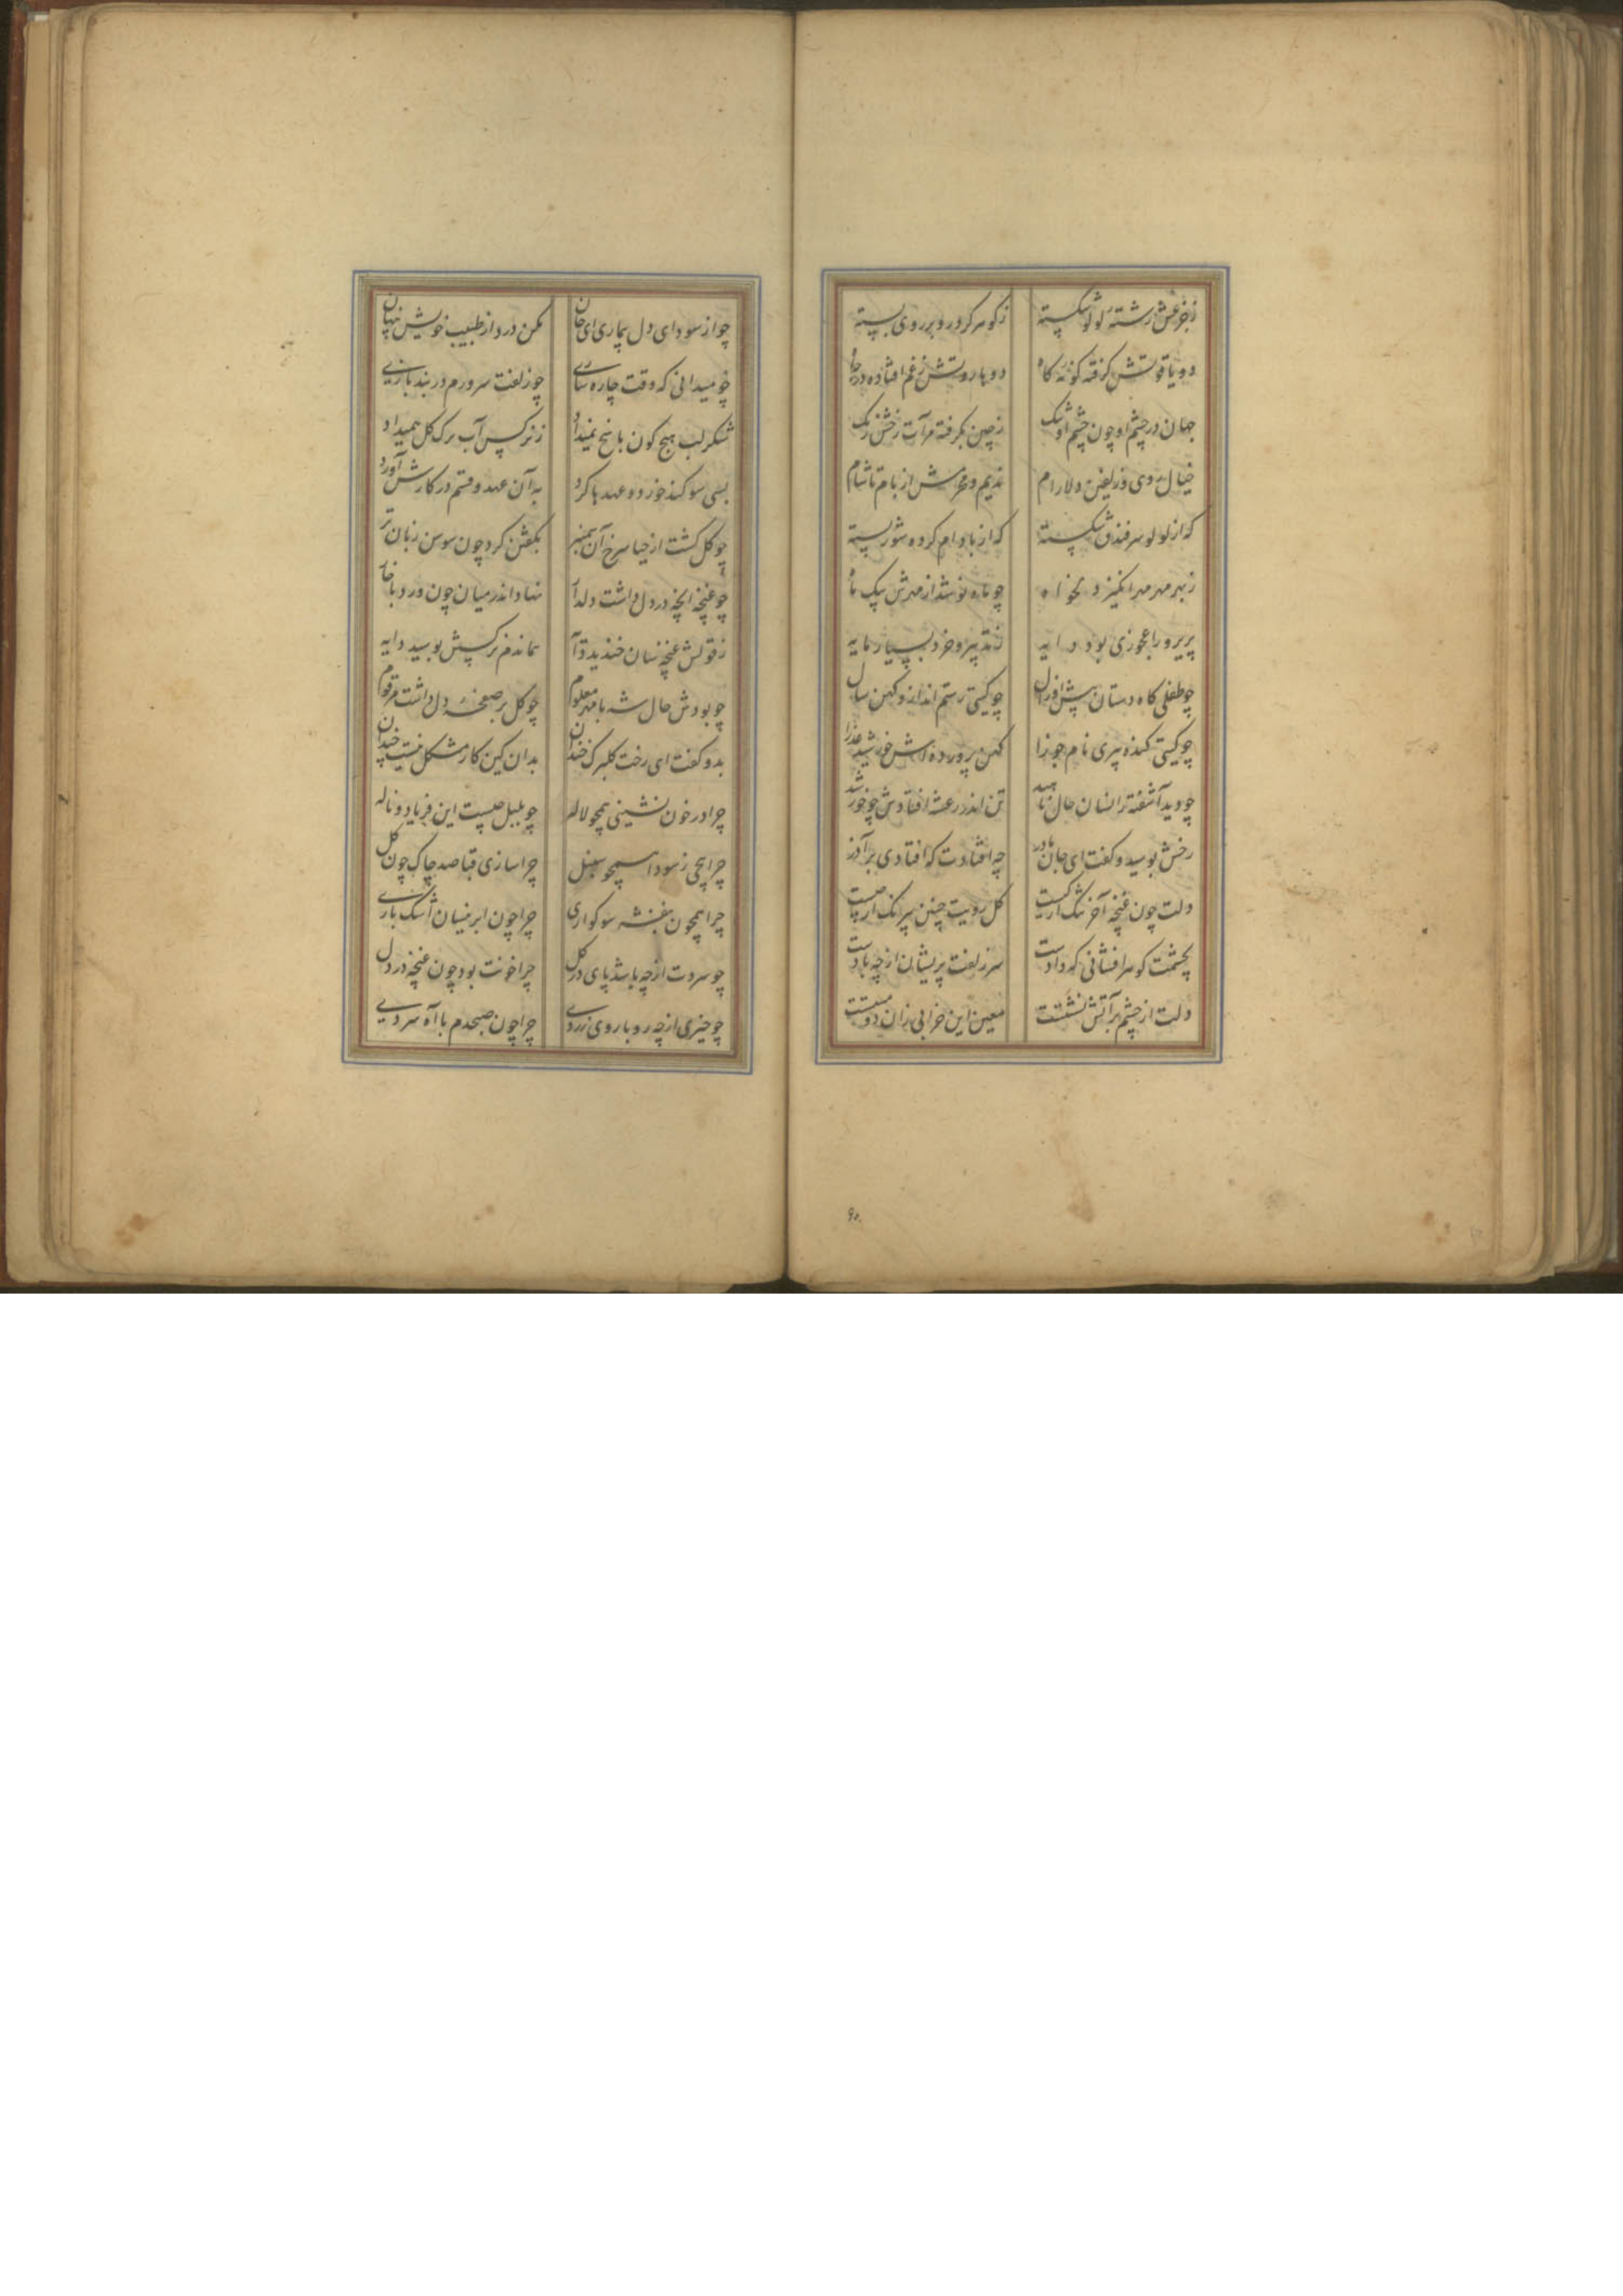 ز جزعش رشته لولو شکسته
ز گوهر کرده در بر روی بسته
دو یاقوتش گرفته گونه کاه
دو هاروتش ز غم افتاده در چاه
جهان در چشم او چون چشم او تنگ
ز چین بگرفته مرآت رخش زنگ
خیال روی و زلفین دلارام
ندیم و محرمش از بام تا شام
که از لولو سر فندق شکسته
که از بادام کرده شور بسته
ز بهر مهر مهرانگیز دلخواه
چو ماه نو شد از مهرش یک ماه
پریرو را عجوزی بود دایه
ز تدبیر و خرد بسیار مایه
چو طفلی گاه دستان پیش او زال
چو گیتی رستم انداز و کهن سال
چو گیتی گنده پیری نام جوزا
کهن پرورده اش خورشید عذرا
چو دید آشفته زانسان حال ناهید
تن اندر رعشه افتادش چو خورشید
رخش بوسید و گفت ای جان مادر
چه افتادت که افتادی بر آذر
دلت چون غنچه آخر تنگ از کیست
گل رویت چنین بیرنگ از چیست
بچشمت گوهر افشانی که دادست
سر زلفت پریشان از چه بادست
دلت از چشم بر آتش نشستست
معین این خرابی زان دو مستست
چو از سودای دل بیماری ای جان
مکن درد از طبیب خویش پنهان
چو میدانی که وقت چاره سازی
چو زلفت سر ورم در بند بازی
شکر لب هیچ گون پاسخ نمیداد
ز نرگس آب برگ گل همیداد
بسی سوگند خورد و عهدها کرد
به آن عهد و قسم در کارش آورد
چو گل گشت از حیا سرخ آن سمنبر
بگفتن کرد چون سوسن زبان تر
چو غنچه آنچه در دل داشت دلدار
نهاد اندر میان چون ورد با خار
ز قولش غنچه سان خندید
نماندم نرگسش بوسید دایه
چو بودش حال شه با مهر معلوم
چو گل بر صفحه دل داشت مرقوم
بدو گفت ای رخت گلبرگ خندان
بدان کین کار مشکل نیست چندان
چرا در خون نشینی همچو لاله
چو بلبل چیست این فریاد و ناله
چرا پیچی ز سودا همچو سنبل
چرا سازی قبا صد چاک چون گل
چرا همچون بنفشه سوگواری
چرا چون ابر نیسان اشک باری
چو سروت از چه باشد پای در گل
چرا خونت بود چون غنچه در دل
چو خیری از چه رو با روی زردی
چرا چون صبحدم با آه سردی
۹۰